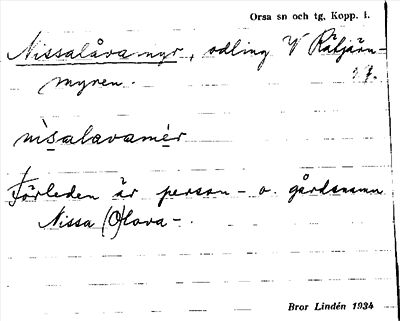 Orsa sn och tg, Kopp. l.
Nissalåva-nyr, odling V Råtjärn-
myren.
nìsalavamér
Förleden är person- o. gårdsnamn
Nissa (O)lova-.
Bror Lindén 1934